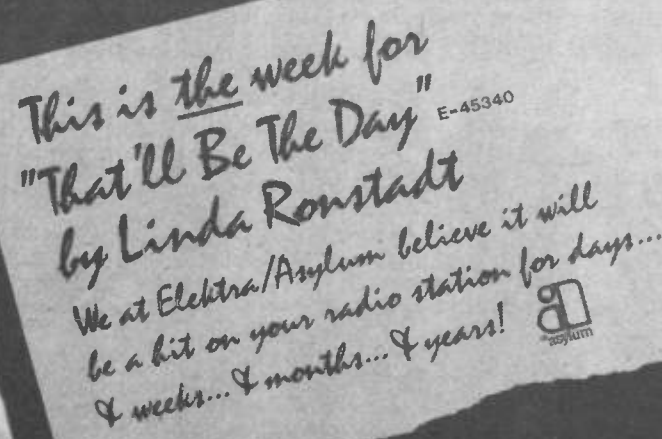 This is the week for
"That'll Be The Day" E-45340
by Linda Ronstadt
We at Elektra/Asylum believe it will
be a hit on your radio station for days...
& weeks... & months... & years!
asylum